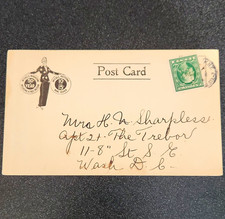 Post Card
Mrs H. N. Sharpless
Apt 21 - The Trevor
11 - 8" St S E
Wash D C -